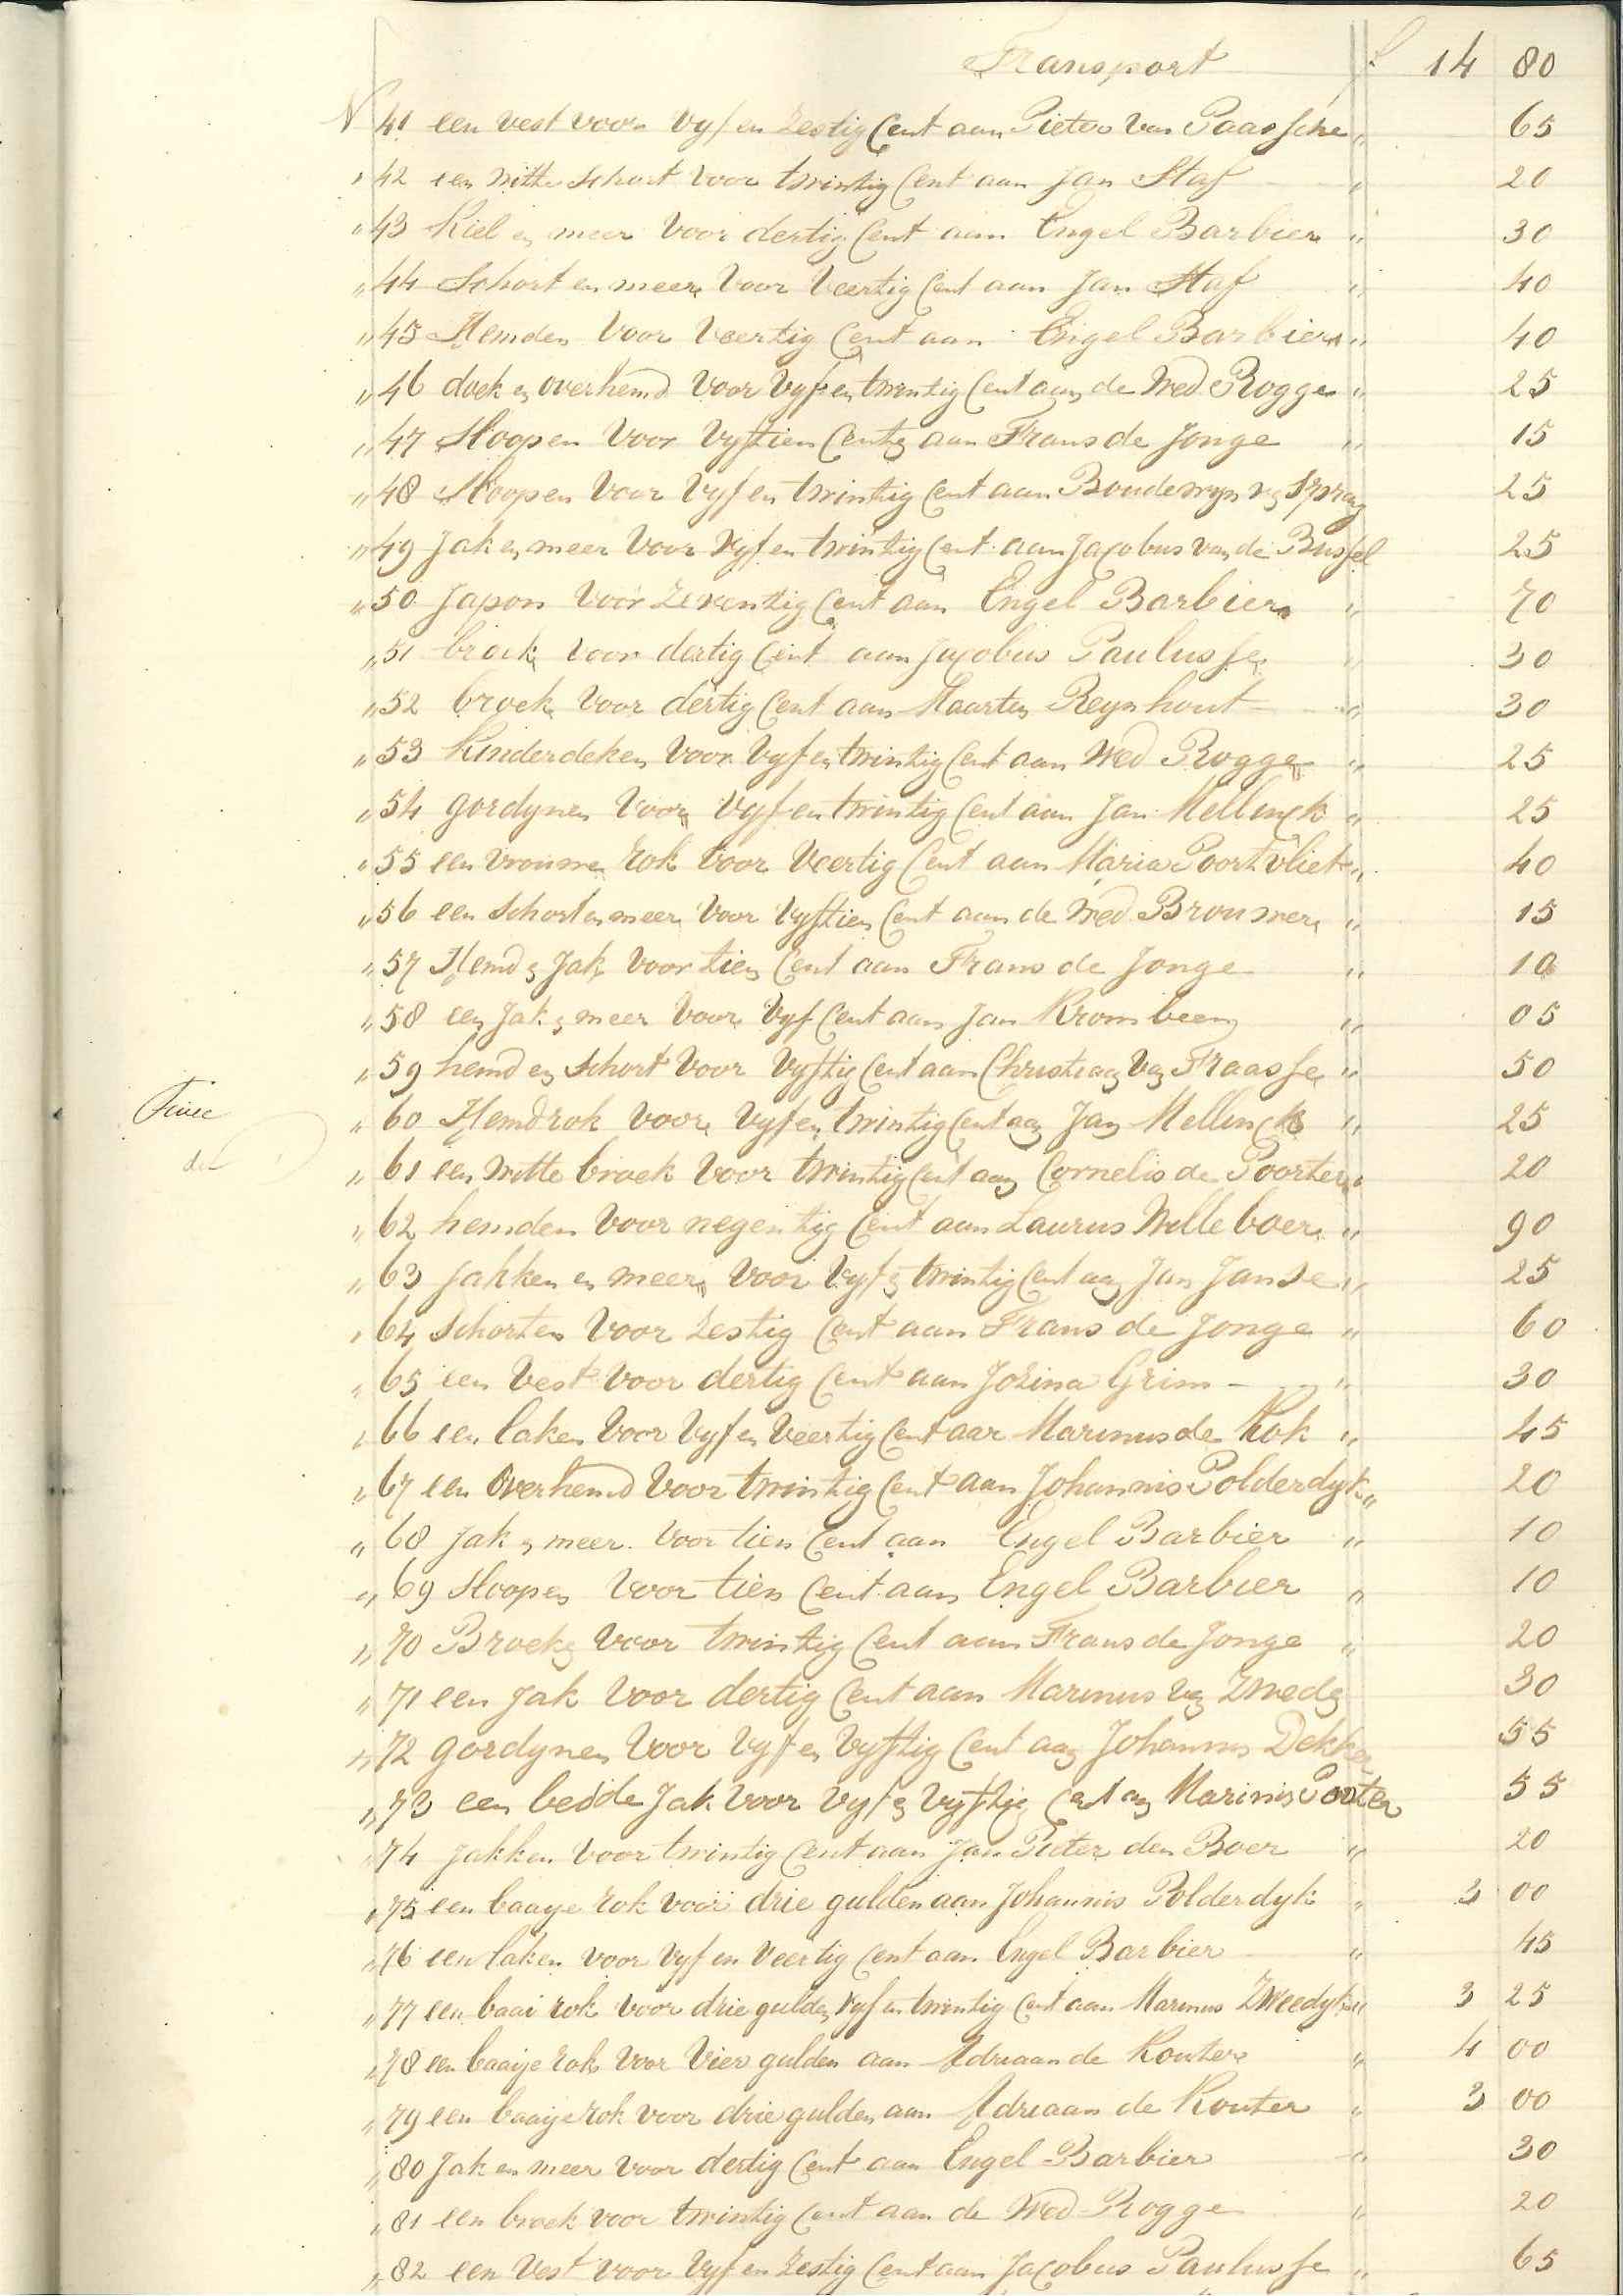 Transport f 14 80
N 41 een vest voor vyf en zestig Cent aan Pieter van Paassche " 65
" 42 een witte schort voor twintig Cent aan Jan Staf " 20
" 43 Kiel en meer voor dertig Cent aan Engel Barbier " 30
" 44 Schort en meer voor veertig Cent aan Jan Staf " 40
" 45 Hemden voor veertig Cent aan Engel Barbier " 40
" 46 doek en overhemd voor vyf en twintig Cent aan de Wed Rogge " 25
" 47 Sloopen voor vyftien Cent aan Frans de Jonge " 15
" 48 Sloopen voor vyf en twintig Cent aan Boudewyn v Sprang 25
" 49 Jak en meer voor vyf en twintig Cent aan Jacobus van de Bussel 25
" 50 Japon voor zeventig Cent aan Engel Barbier " 70
" 51 broek voor dertig Cent aan Jacobus Paulusse " 30
" 52 broek voor dertig Cent aan Maarten Reynhout " 30
" 53 Kinderdeken voor vyf en twintig Cent aan Wed Rogge " 25
" 54 gordynen voor vyf en twintig Cent aan Jan Mellinck " 25
" 55 een vrouwe rok voor veertig Cent aan Maria Poortvliet " 40
" 56 een Schort en meer voor vyftien Cent aan de Wed Brouwer " 15
" 57 Hemd en Jak voor tien Cent aan Frans de Jonge " 10
" 58 een Jak en meer voor vyf Cent aan Jan Krombeen " 05
" 59 hemd en Schort voor vyftig Cent aan Christiaan van Fraasse " 50
" 60 Hemdrok voor vyf en twintig Cent aan Jan Mellinck " 25
" 61 een witte broek voor twintig Cent aan Cornelis de Poorter " 20
" 62 hemden voor negentig Cent aan Laurus Willeboer " 90
" 63 Jakken en meer voor vyf en twintig Cent aan Jan Janse " 25
" 64 Schorten voor zestig Cent aan Frans de Jonge " 60
" 65 een vest voor dertig Cent aan Jozina Grim " 30
" 66 een laken voor vyf en veertig Cent aan Marinus de Kok " 45
" 67 een Overhemd voor twintig Cent aan Johannis Polderdyk " 20
" 68 Jak en meer voor tien Cent aan Engel Barbier " 10
" 69 Sloopen voor tien Cent aan Engel Barbier " 10
" 70 Broek voor twintig Cent aan Frans de Jonge " 20
" 71 een Jak voor dertig Cent aan Marinus 30
" 72 gordynen voor vyf en vyftig Cent aan Johannis Dekker 55
" 73 een bedde Jak voor vyf en vyftig Cent aan Marinis Poorter 55
" 74 Jakken voor twintig Cent aan Jan Pieter den Boer " 20
" 75 een baaye rok voor drie gulden aan Johannis Polderdyk " 3 00
" 76 een laken voor vyf en veertig Cent aan Engel Barbier " 45
" 77 een baai rok voor drie gulden vyf en twintig Cent aan Marinus Zweedyk " 3 25
" 78 een baaije rok voor vier gulden aan Adriaan de Kouter " 4 00
" 79 een baaije rok voor drie gulden aan Adriaan de Kouter " 3 00
" 80 Jak en meer voor dertig Cent aan Engel Barbier " 30
" 81 een broek voor twintig Cent aan de Wed Rogge " 20
" 82 een vest voor vyf en zestig Cent aan Jacobus Paulusse " 65